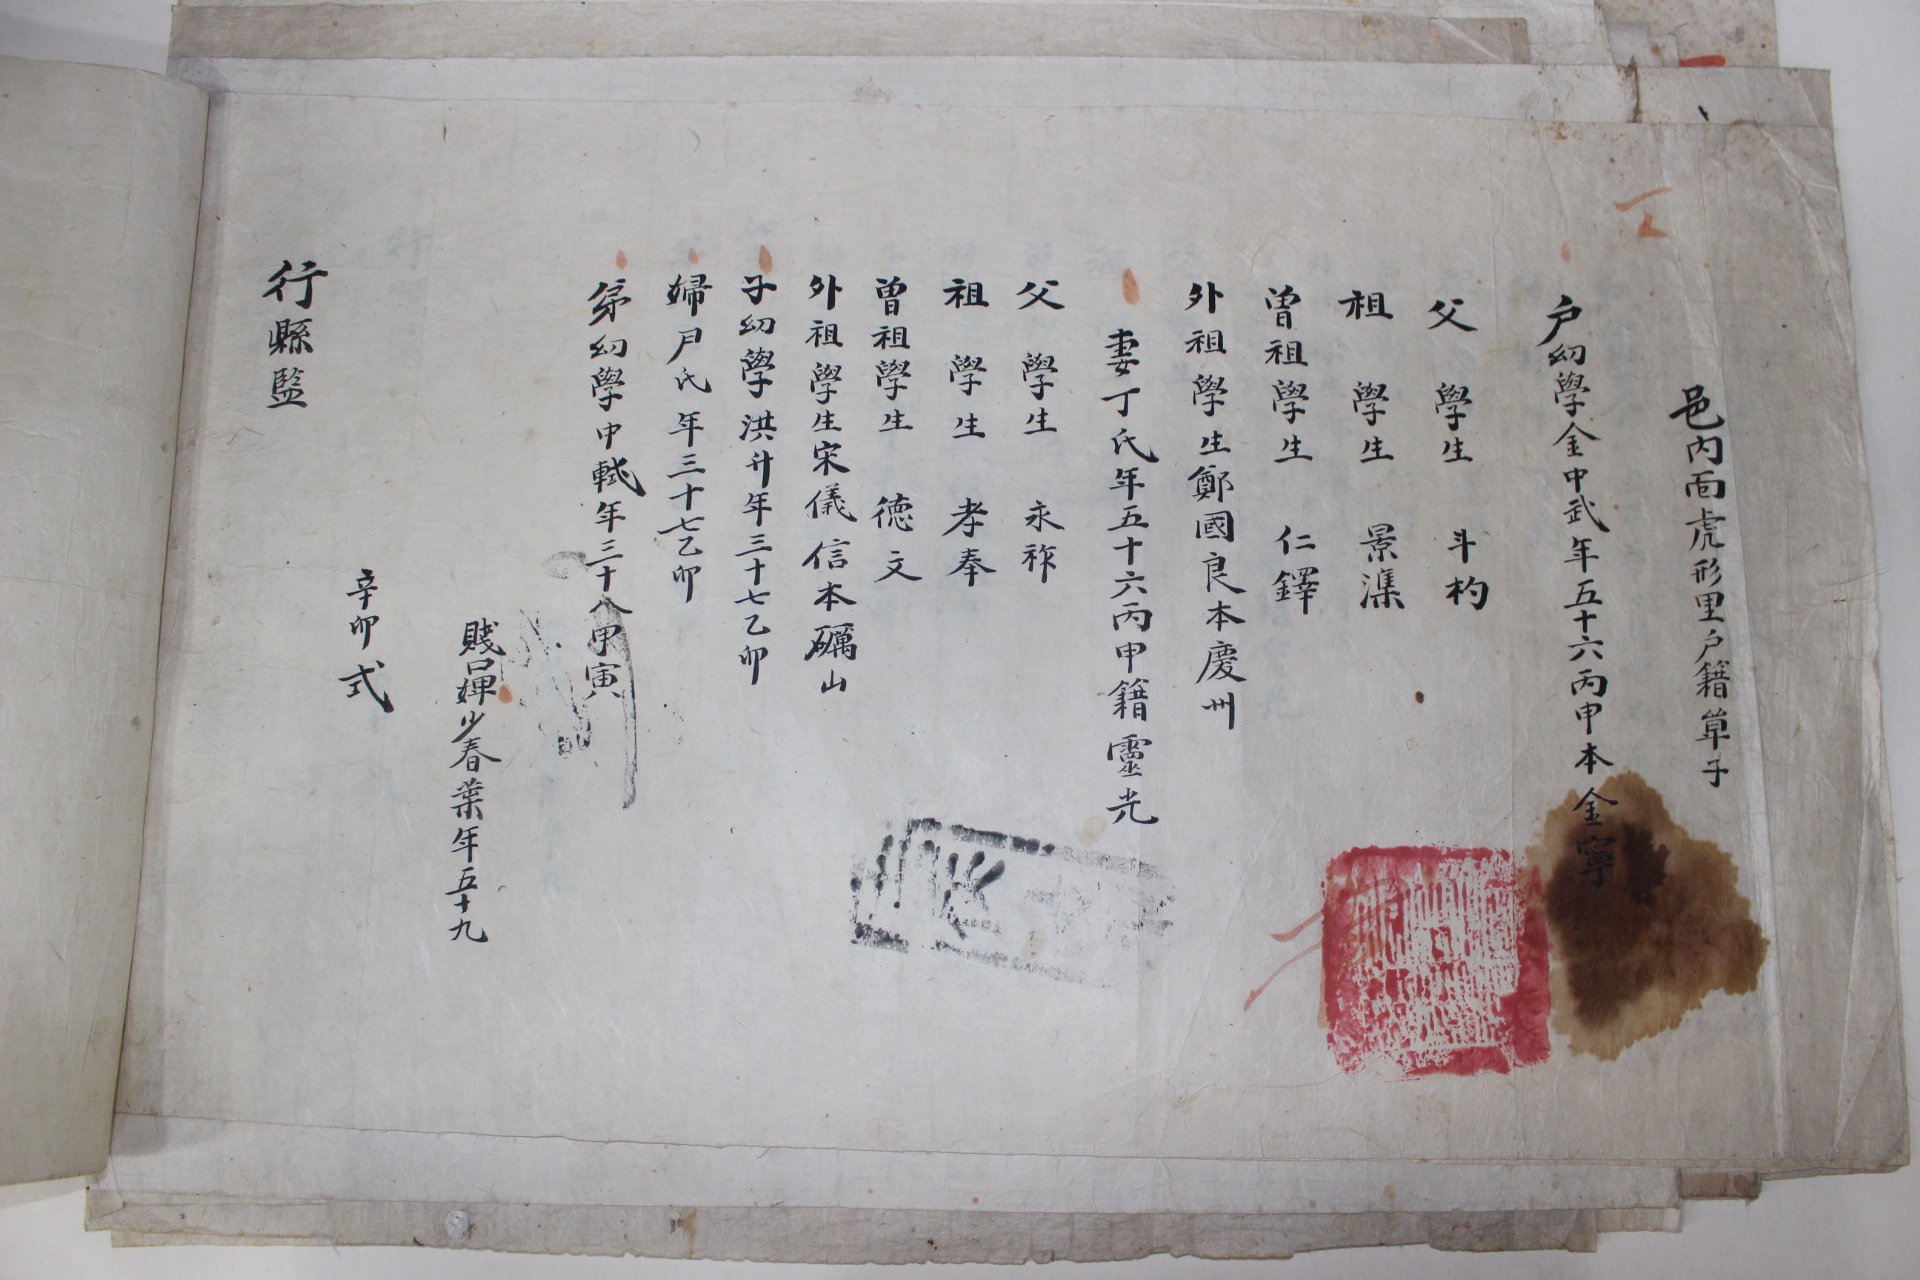 邑內面虎形里戶籍草子
戶幼學金中武年五十六丙申本金寧
父學生斗杓
祖學生景濈
曾祖學生仁鐸
外祖學生鄭國良本慶州
妻丁氏年五十六丙申籍靈光
父學生永祚
祖學生孝奉
曾祖學生德文
外祖學生宋儀信本礪山
子幼學洪升年三十七乙卯
婦尹氏年三十七乙卯
弟幼學中軾年三十八甲寅
賤口婢少春葉年五十九
辛卯式
行縣監